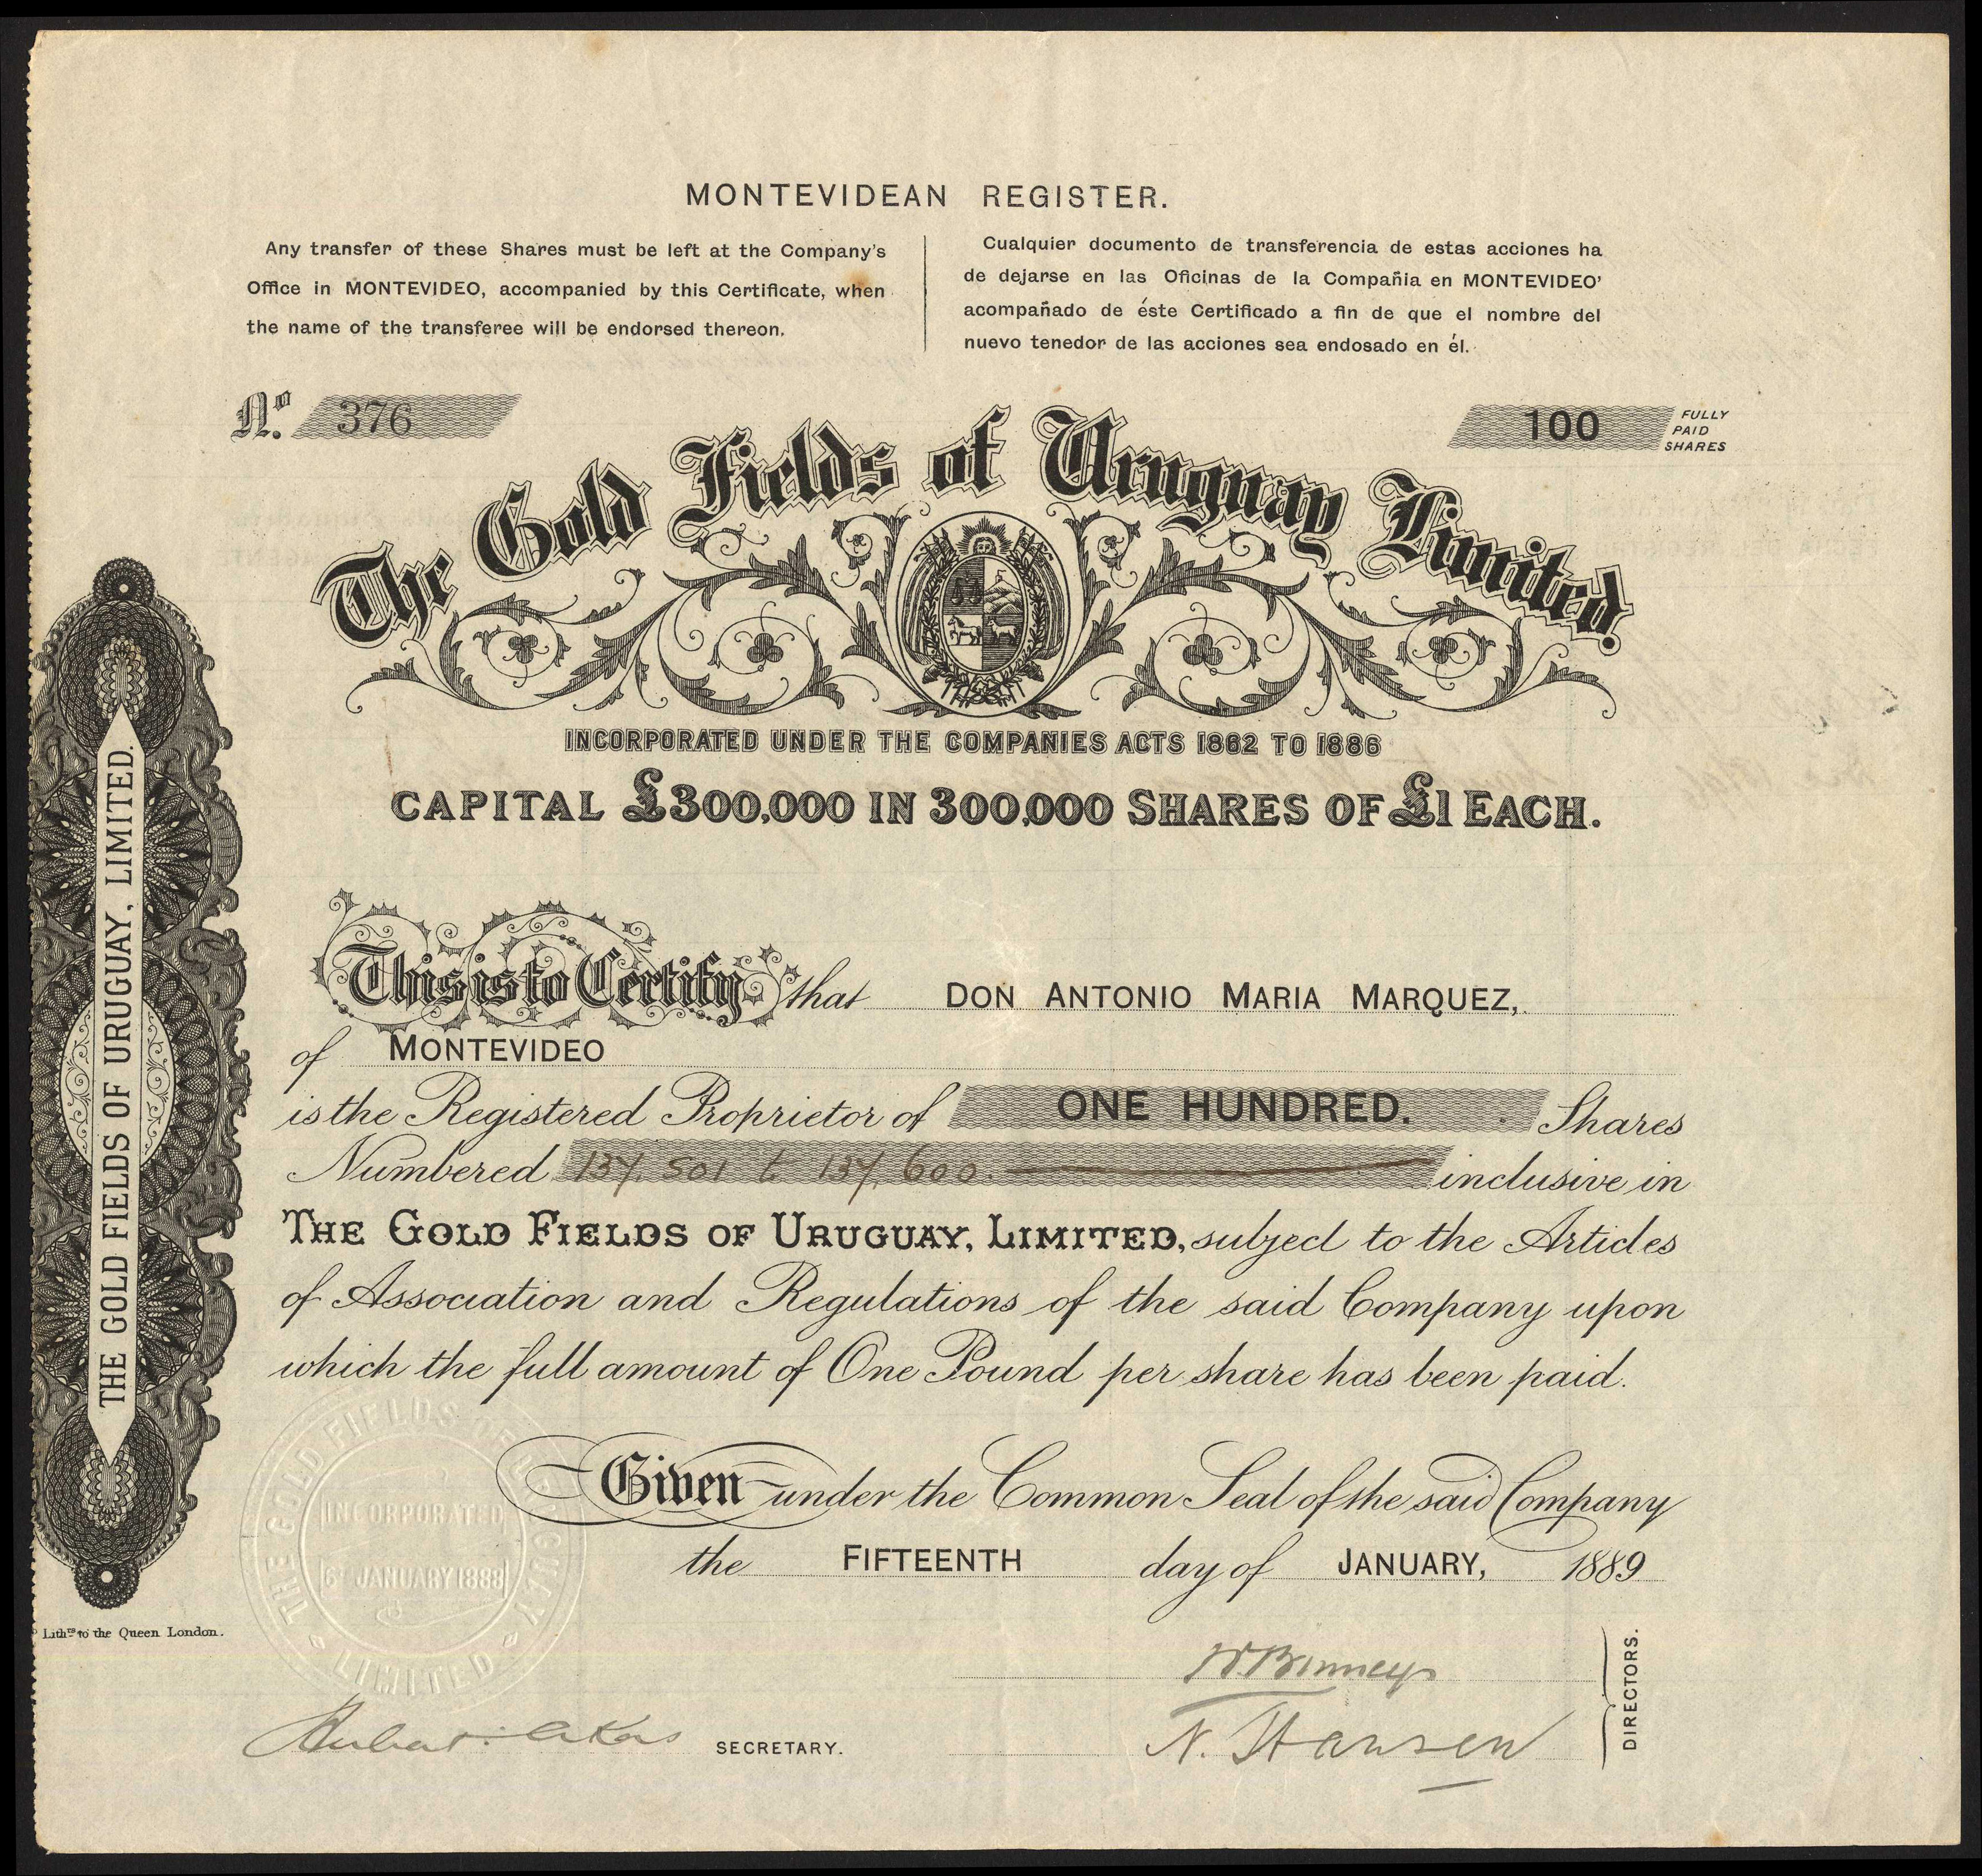 MONTEVIDEAN REGISTER.
Any transfer of these Shares must be left at the Company's
Office in MONTEVIDEO, accompanied by this Certificate, when
the name of the transferee will be endorsed thereon.
Cualquier documento de transferencia de estas acciones ha
de dejarse en las Oficinas de la Compañia en MONTEVIDEO'
acompañado de éste Certificado a fin de que el nombre del
nuevo tenedor de las acciones sea endosado en él.
No. 376
100 FULLY PAID SHARES
The Gold Fields of Uruguay Limited.
INCORPORATED UNDER THE COMPANIES ACTS 1862 TO 1886
CAPITAL £300,000 IN 300,000 SHARES OF £1 EACH.
This is to Certify that DON ANTONIO MARIA MARQUEZ,
of MONTEVIDEO
is the Registered Proprietor of ONE HUNDRED. Shares
Numbered 137.501 to 137.600. inclusive in
THE GOLD FIELDS OF URUGUAY, LIMITED, subject to the Articles
of Association and Regulations of the said Company upon
which the full amount of One Pound per share has been paid.
Given under the Common Seal of the said Company
the FIFTEENTH day of JANUARY, 1889
W. Binney
N. Hansen
DIRECTORS.
SECRETARY.
THE GOLD FIELDS OF URUGUAY, LIMITED.
Lithrs to the Queen London.
THE GOLD FIELDS OF URUGUAY
INCORPORATED
6TH JANUARY 1888
LIMITED